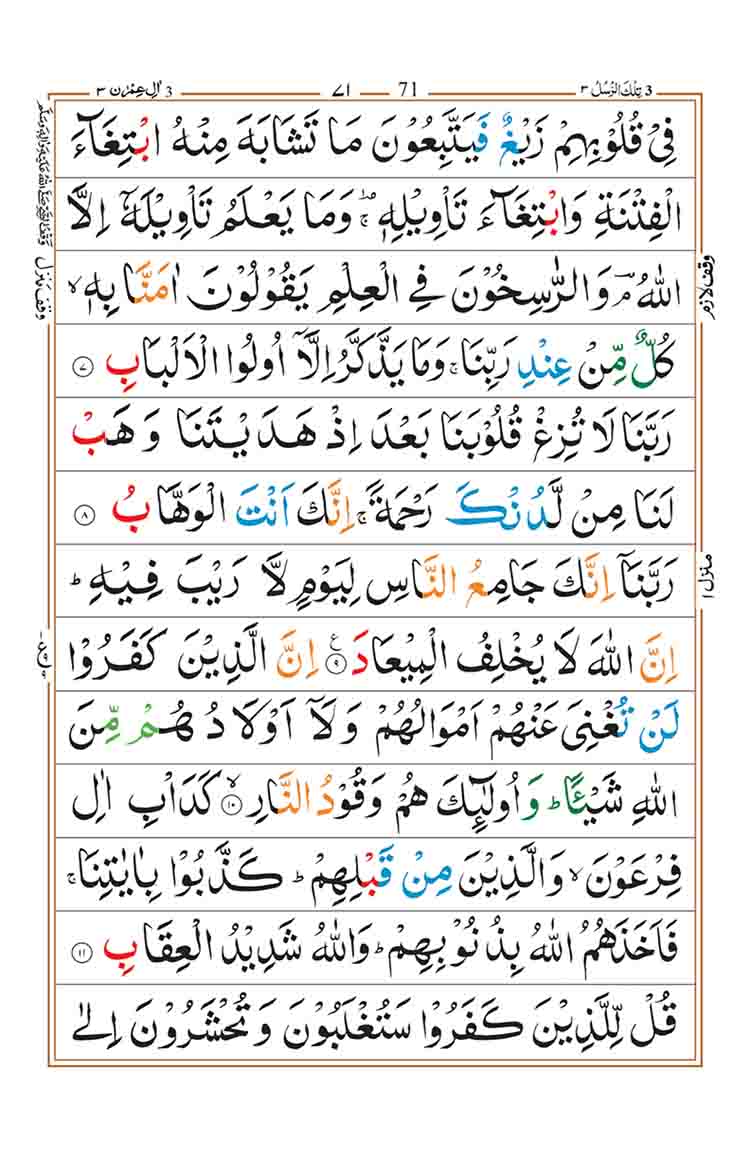 3 تِلْكَ الرُّسُلُ ٣ 71 ٧١ 3 اٰلِ عِمْرٰن ٣
فِیْ قُلُوْبِهِمْ زَیْغٌ فَیَتَّبِعُوْنَ مَا تَشَابَهَ مِنْهُ ابْتِغَآءَ
الْفِتْنَةِ وَابْتِغَآءَ تَاْوِیْلِهٖ ۚ وَمَا یَعْلَمُ تَاْوِیْلَهٗۤ اِلَّا
اللّٰهُ ۘ وَالرّٰسِخُوْنَ فِی الْعِلْمِ یَقُوْلُوْنَ اٰمَنَّا بِهٖ ۙ
كُلٌّ مِّنْ عِنْدِ رَبِّنَا ۚ وَمَا یَذَّكَّرُ اِلَّاۤ اُولُوا الْاَلْبَابِ ۷
رَبَّنَا لَا تُزِغْ قُلُوْبَنَا بَعْدَ اِذْ هَدَیْتَنَا وَهَبْ
لَنَا مِنْ لَّدُنْكَ رَحْمَةً ۚ اِنَّكَ اَنْتَ الْوَهَّابُ ۸
رَبَّنَاۤ اِنَّكَ جَامِعُ النَّاسِ لِیَوْمٍ لَّا رَیْبَ فِیْهِ ؕ
اِنَّ اللّٰهَ لَا یُخْلِفُ الْمِیْعَادَ ۹ ع اِنَّ الَّذِیْنَ كَفَرُوْا
لَنْ تُغْنِیَ عَنْهُمْ اَمْوَالُهُمْ وَلَاۤ اَوْلَادُهُمْ مِّنَ
اللّٰهِ شَیْـًٔا ؕ وَاُولٰٓئِكَ هُمْ وَقُوْدُ النَّارِ ۙ ۱۰ كَدَاْبِ اٰلِ
فِرْعَوْنَ ۙ وَالَّذِیْنَ مِنْ قَبْلِهِمْ ؕ كَذَّبُوْا بِاٰیٰتِنَا ۚ
فَاَخَذَهُمُ اللّٰهُ بِذُنُوْبِهِمْ ؕ وَاللّٰهُ شَدِیْدُ الْعِقَابِ ۱۱
قُلْ لِّلَّذِیْنَ كَفَرُوْا سَتُغْلَبُوْنَ وَتُحْشَرُوْنَ اِلٰی
وقف لازم
منزل ۱
وقف منزل